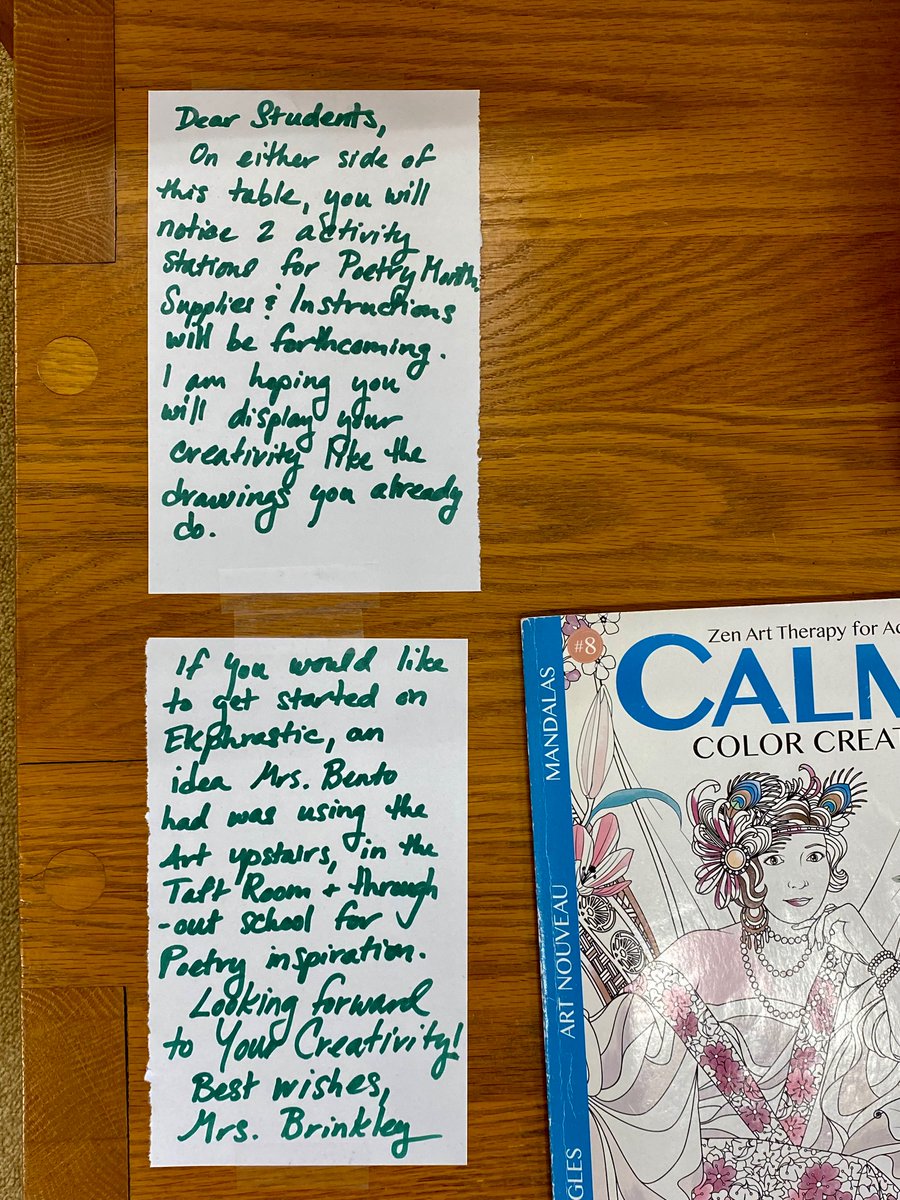 Dear Students,
On either side of
this table, you will
notice 2 activity
Stations for Poetry Month.
Supplies & Instructions
will be forthcoming.
I am hoping you
will display your
creativity like the
drawings you already
do.
If you would like
to get started on
Ekphrastic, an
idea Mrs. Bento
had was using the
Art upstairs, in the
Taft Room + through
-out school for
Poetry inspiration.
Looking forward
to Your Creativity!
Best wishes,
Mrs. Brinkley
#8
Zen Art Therapy for Ad
CALM
COLOR CREAT
MANDALAS
ART NOUVEAU
GLES